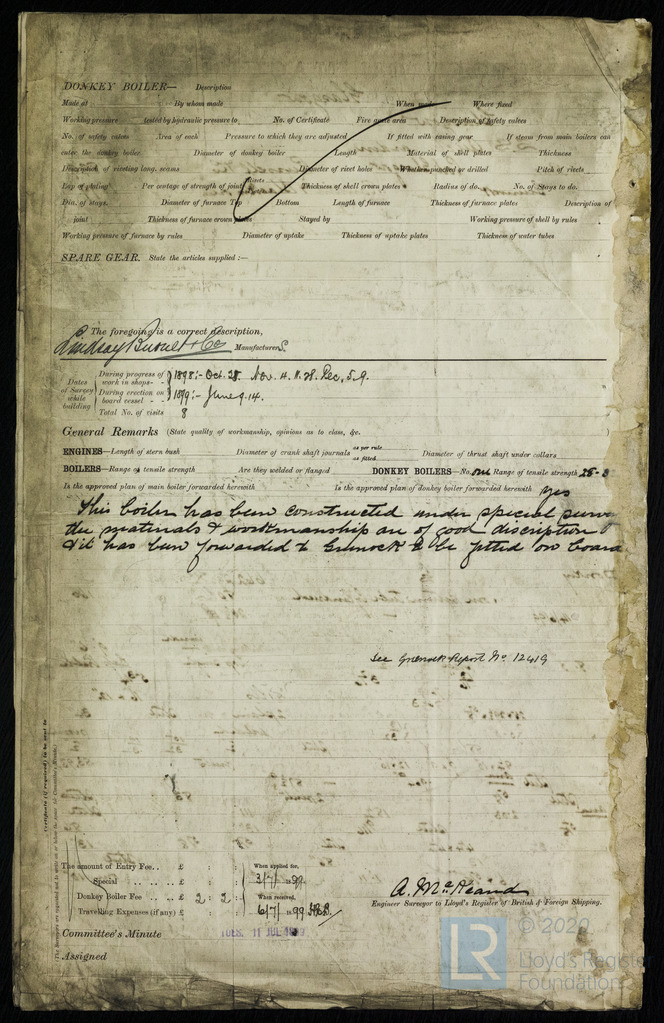 DONKEY BOILER— Description
Made at By whom made When made Where fixed
Working pressure tested by hydraulic pressure to No. of Certificate Fire grate area Description of safety valves
No. of safety valves Area of each Pressure to which they are adjusted If fitted with easing gear If steam from main boilers can
enter the donkey boiler Diameter of donkey boiler Length Material of shell plates Thickness
Description of riveting long. seams Diameter of rivet holes Whether punched or drilled Pitch of rivets
Lap of plating Per centage of strength of joint Rivets Thickness of shell crown plates Radius of do. No. of Stays to do.
Dia. of stays. Diameter of furnace Top Bottom Length of furnace Thickness of furnace plates Description of
joint Thickness of furnace crown plates Stayed by Working pressure of shell by rules
Working pressure of furnace by rules Diameter of uptake Thickness of uptake plates Thickness of water tubes
SPARE GEAR. State the articles supplied :—
The foregoing is a correct description,
Lindsay Burnet & Co Manufacturers.
Dates of Survey while building
During progress of work in shops - - 1898:- Oct. 28. Nov. 4. 11. 28. Dec. 5. 9.
During erection on board vessel - - 1899:- June 9. 14.
Total No. of visits 8
General Remarks (State quality of workmanship, opinions as to class, &c.
ENGINES—Length of stern bush Diameter of crank shaft journals as per rule as fitted Diameter of thrust shaft under collars
BOILERS—Range of tensile strength Are they welded or flanged DONKEY BOILERS—No. one Range of tensile strength 28-3
Is the approved plan of main boiler forwarded herewith Is the approved plan of donkey boiler forwarded herewith yes
This boiler has been constructed under special surve
the materials & workmanship are of good discription
& it has been forwarded to Greenock to be fitted on board
See Greenock Report No. 12419
Certificate (if required) to be sent to
The amount of Entry Fee.. £ : : When applied for,
Special .. .. .. £ : : 3/7/1899
Donkey Boiler Fee .. .. £ 2 : 2 : When received,
Travelling Expenses (if any) £ : : 6/7/1899
A. McKeand
Engineer Surveyor to Lloyd's Register of British & Foreign Shipping.
Committee's Minute TUES. 11 JUL 1899
Assigned
© 2020
LR Lloyd's Register
Foundation